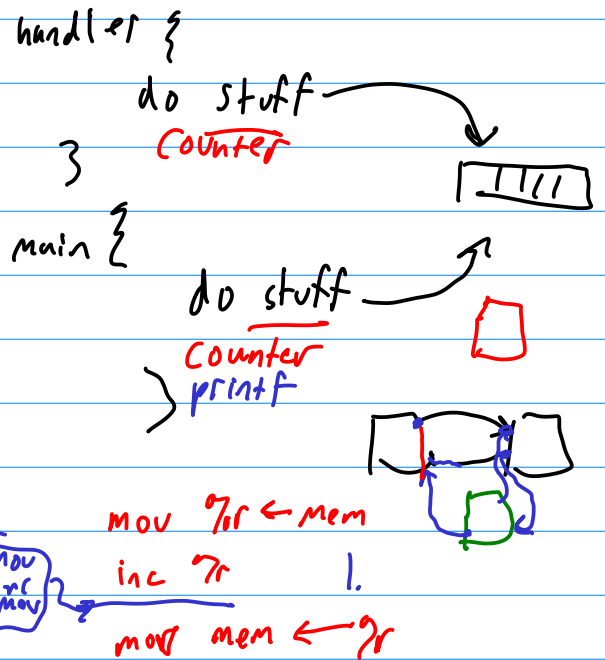 handler {
do stuff
counter
}
main {
do stuff
counter
printf
}
mov %r ← mem
inc %r
1.
mov
mov
mov mem ← %r